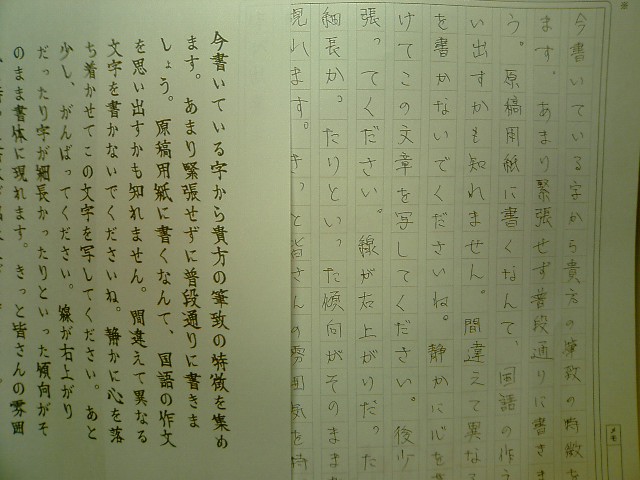 メモ
今書いている字から貴方の筆致の特徴を
ます。あまり緊張せず普段通りに書きま
う。原稿用紙に書くなんて、国語の作
い出すかも知れません。間違えて異なる
を書かないでくださいね。静かに心を
けてこの文章を写してください。後少
張ってください。線が右上がりだった
細長かったりといった傾向がそのまま
現れます。きっと皆さんの雰囲気を持
今書いている字から貴方の筆致の特徴を集め
ます。あまり緊張せずに普段通りに書きま
しょう。原稿用紙に書くなんて、国語の作文
を思い出すかも知れません。間違えて異なる
文字を書かないでくださいね。静かに心を落
ち着かせてこの文字を写してください。あと
少し、がんばってください。線が右上がり
だったり字が細長かったりといった傾向がそ
のまま書体に現れます。きっと皆さんの雰囲